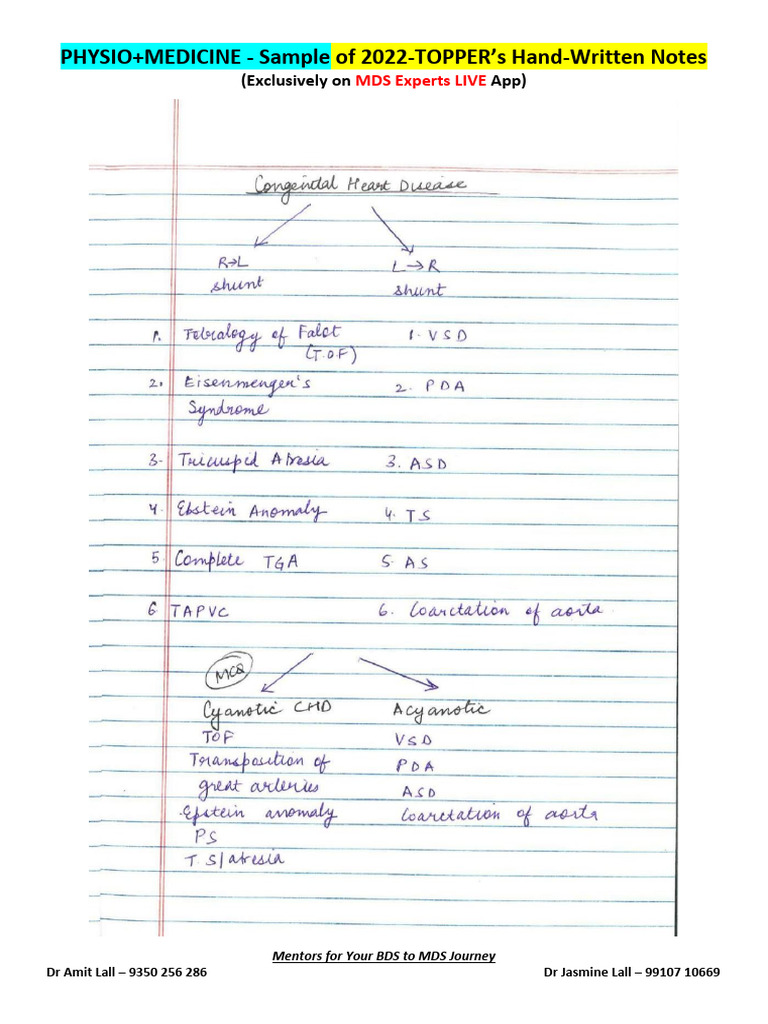 PHYSIO+MEDICINE - Sample of 2022-TOPPER's Hand-Written Notes
(Exclusively on MDS Experts LIVE App)
Congenital Heart Disease
R→L L→R
shunt shunt
1. Tetralogy of Falot 1. VSD
(T.O.F)
2. Eisenmenger's 2. PDA
Syndrome
3. Tricuspid Atresia 3. ASD
4. Ebstein Anomaly 4. TS
5. Complete TGA 5. AS
6 TAPVC 6. Coarctation of aorta.
MCQ
Cyanotic CHD Acyanotic
TOF VSD
Transposition of PDA
great arteries ASD
Epstein anomaly Coarctation of aorta
PS
T. S/atresia
Mentors for Your BDS to MDS Journey
Dr Amit Lall – 9350 256 286 Dr Jasmine Lall – 99107 10669